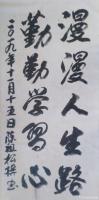 漫漫人生路
勤勤学習心
二〇一九年十一月十五日陈祖松撰书